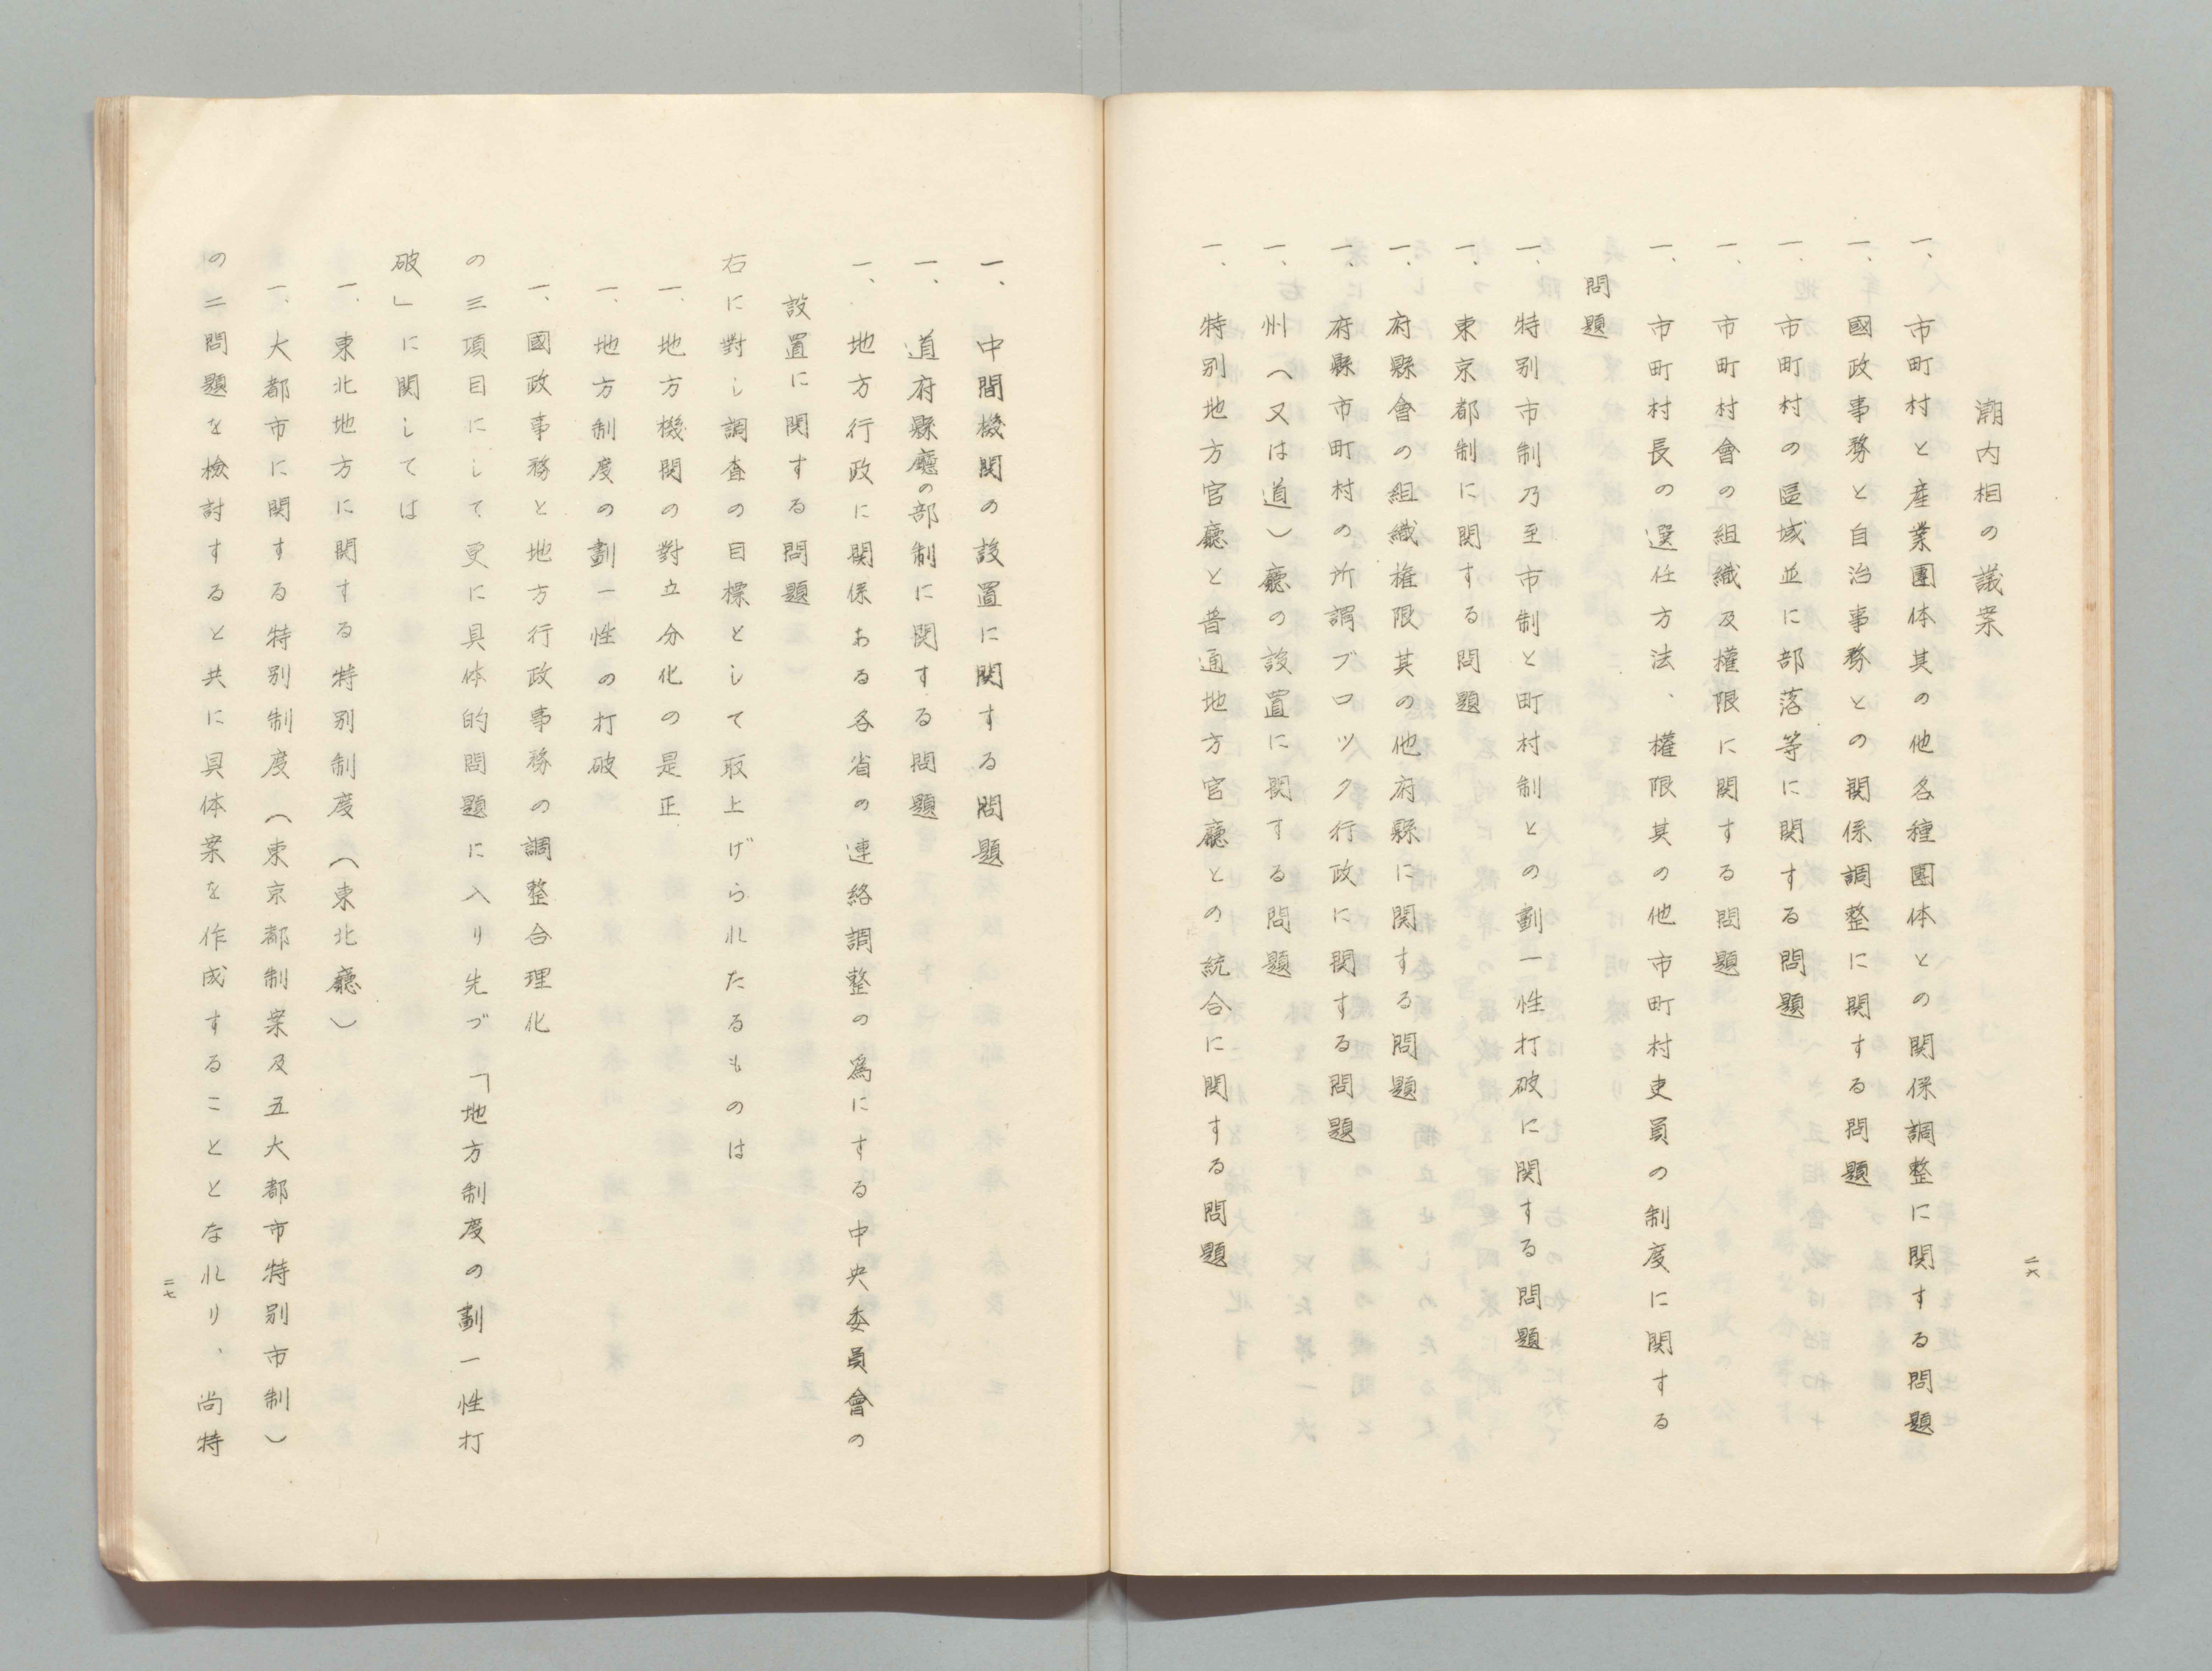 潮内相の議案
一、市町村と産業團体其の他各種團体との関係調整に関する問題
一、國政事務と自治事務との関係調整に関する問題
一、市町村の區域並に部落等に関する問題
一、市町村會の組織及權限に関する問題
一、市町村長の選任方法、權限其の他市町村吏員の制度に関する
問題
一、特別市制乃至市制と町村制との劃一性打破に関する問題
一、東京都制に関する問題
一、府縣會の組織権限其の他府縣に関する問題
一、府縣市町村の所謂ブロツク行政に関する問題
一、州（又は道）廳の設置に関する問題
一、特別地方官廳と普通地方官廳との統合に関する問題
二六
一、中間機関の設置に関する問題
一、道府縣廳の部制に関する問題
一、地方行政に関係ある各省の連絡調整の爲にする中央委員會の
設置に関する問題
右に對し調査の目標として取上げられたるものは
一、地方機関の對立分化の是正
一、地方制度の劃一性の打破
一、國政事務と地方行政事務の調整合理化
の三項目にして更に具体的問題に入り先づ「地方制度の劃一性打
破」に関しては
一、東北地方に関する特別制度（東北廳）
一、大都市に関する特別制度（東京都制案及五大都市特別市制）
の二問題を檢討すると共に具体案を作成することとなれり、尚特
二七